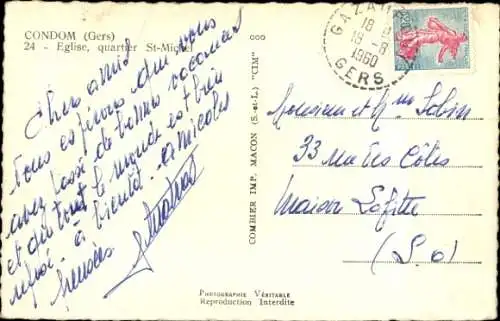 CONDOM (Gers)
24 - Eglise, quartier St-Michel
Chers amis
nous espérons que vous
avez passé de bonnes vacances
et que tout le monde est bien
à bientôt. amicales
pensées
COMBIER IMP. MACON (S.-et-L.) "CIM"
PHOTOGRAPHIE VÉRITABLE
Reproduction Interdite
18
18-8
1960
GERS
Monsieur et Mme
33 rue des Côtes
Maison Lafitte
(S.O)